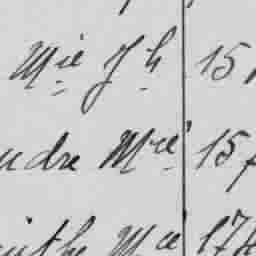 Mie Jh 15
ndre Mrie 15
inthe Mie 174